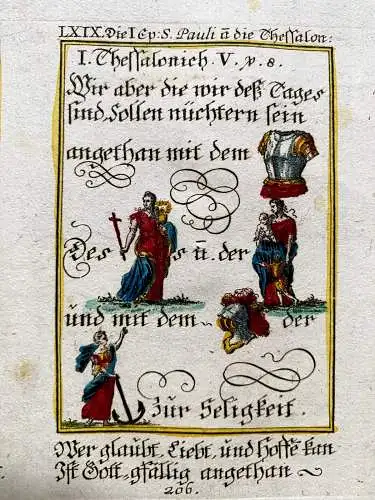 LXIX. Die I Ep: S. Pauli ā die Thessalon:
I. Thessalonich. V. v. 8.
Wir aber die wir deß Tages
sind, Sollen nüchtern sein
angethan mit dem
Des s ū. der
und mit dem der
Zur Seligkeit.
Wer glaubt, Liebt, und Hofft kan
Ist Gott-gfällig angethan
206.